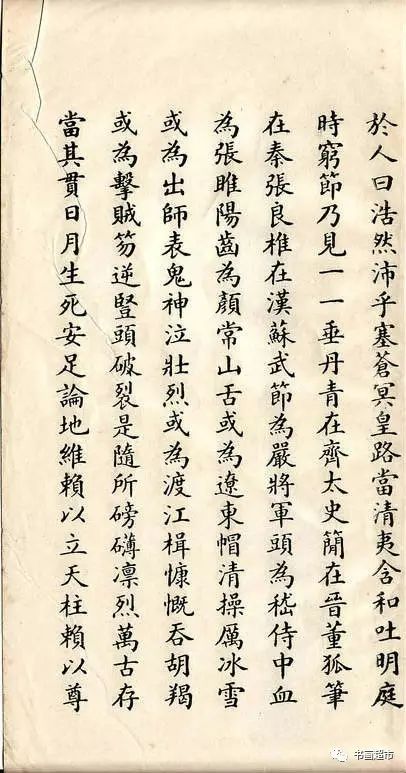 於人曰浩然沛乎塞蒼冥皇路當清夷含和吐明庭
時窮節乃見一一垂丹青在齊太史簡在晉董狐筆
在秦張良椎在漢蘇武節為嚴將軍頭為嵇侍中血
為張睢陽齒為顏常山舌或為遼東帽清操厲冰雪
或為出師表鬼神泣壯烈或為渡江楫慷慨吞胡羯
或為擊賊笏逆豎頭破裂是隨所磅礴凛烈萬古存
當其貫日月生死安足論地維賴以立天柱賴以尊
书画超市